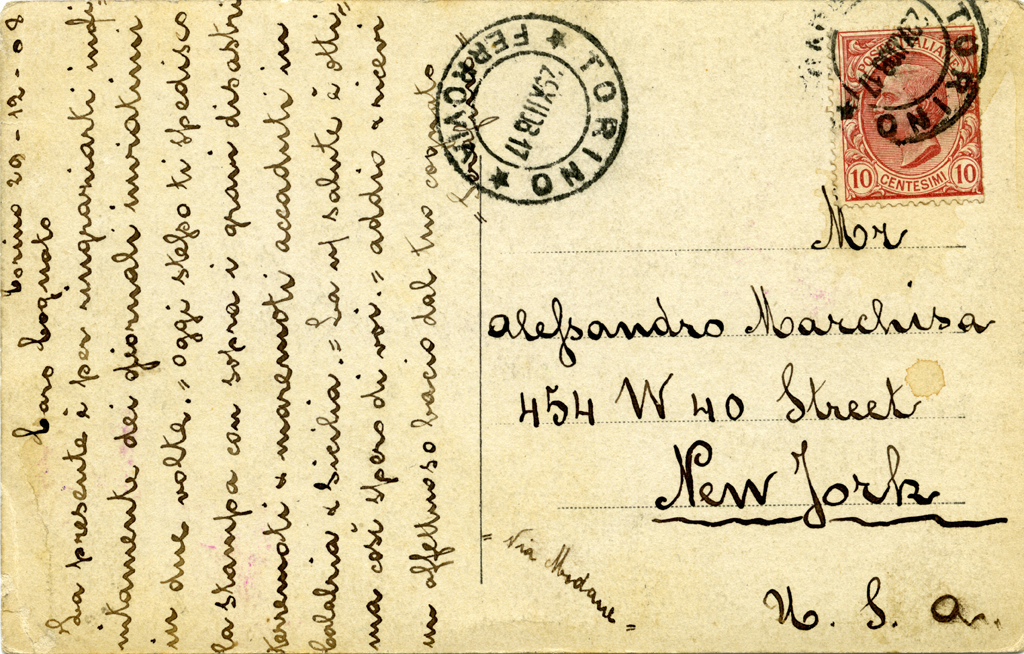 Torino 29-12-08
Caro Cognato
La presente è per ringraziarti infi=
nitamente dei giornali inviatimi
in due volte. = oggi stesso ti spedisco
la stampa con sopra i gran disastri
terremoti e maremoti accaduti in
Calabria e Sicilia. = La m/ salute è otti=
ma così spero di voi. = addio e ricevi
un affettuoso bacio dal tuo cognato
TORINO
FERROVIA
29.XII.08.17
TORINO
POSTE ITALIANE
10 CENTESIMI 10
Mr
Alessandro Marchisa
454 W 40 Street
New York
= Via Modane =
U. S. A.